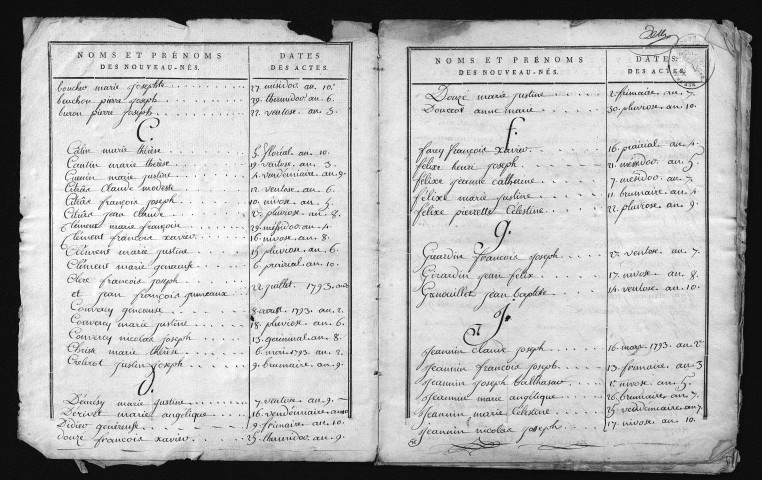 NOMS ET PRÉNOMS
DES NOUVEAU-NÉS.
DATES
DES ACTES.
bouchon pierre joseph 29. thermidor an. 6.
buron pierre joseph 22. ventose an. 3.
C.
Catin marie thérèse 5. florial an. 10.
Cautin marie thérèse 19. ventose an. 3.
Cuenin marie justine 4. vendémiaire an. 9.
Claude modeste 12. ventose an. 6.
françois joseph 10. nivose an. 5.
jean claude 27. pluviose an. 8.
Clement marie françoise 29. messidor an. 4.
Clément francois xavier 16. nivose an. 8.
Clément marie justine 15. pluviose an. 6.
Clément marie 6. prairial an. 10.
Clerc françois joseph
et jean françois jumeaux 22 juillet 1793.
Convercy 8. aoust 1793 an. 2.
Convercy marie justine 18. pluviose an. 6.
Convercy nicolas joseph 13. germinal an. 8.
Christ marie thérèse 6. mars 1793 an. 2.
justin joseph 9. brumaire an. 9.
marie justine 7. ventose an. 9.
marie angelique 16. vendémiaire
Didier genereuse 9. frimaire an. 10.
Douzé francois xavier 25. thermidor an. 9.
NOMS ET PRÉNOMS
DES NOUVEAU-NÉS.
DATES
DES ACTES.
Douzé marie justine 2. frimaire an. 7.
anne marie 30. pluviose an. 10.
f.
farey françois xavier 16. prairial an. 4.
felixe henri joseph 21. messidor an. 5.
félixe jeanne catherine 7. messidor an. 7.
félixe marie justine 11. brumaire an. 4.
felixe pierrette Celestine 22. pluviose an. 9.
g.
Girardin francois joseph 27. ventose an. 7.
Girardin jean felix 17. nivose an. 8.
jean baptiste 14. ventose an. 10.
J.
jeannin claude joseph 16. mars 1793 an. 2.
jeannin francois joseph 13. frimaire an. 3
jeannin joseph balthasar nivose an. 5.
jeannin marie angelique 26. brumaire an. 7.
jeannin marie Celestine 25. vendemiaire an. 7.
jeannin nicolas joseph 17. nivose an. 10.